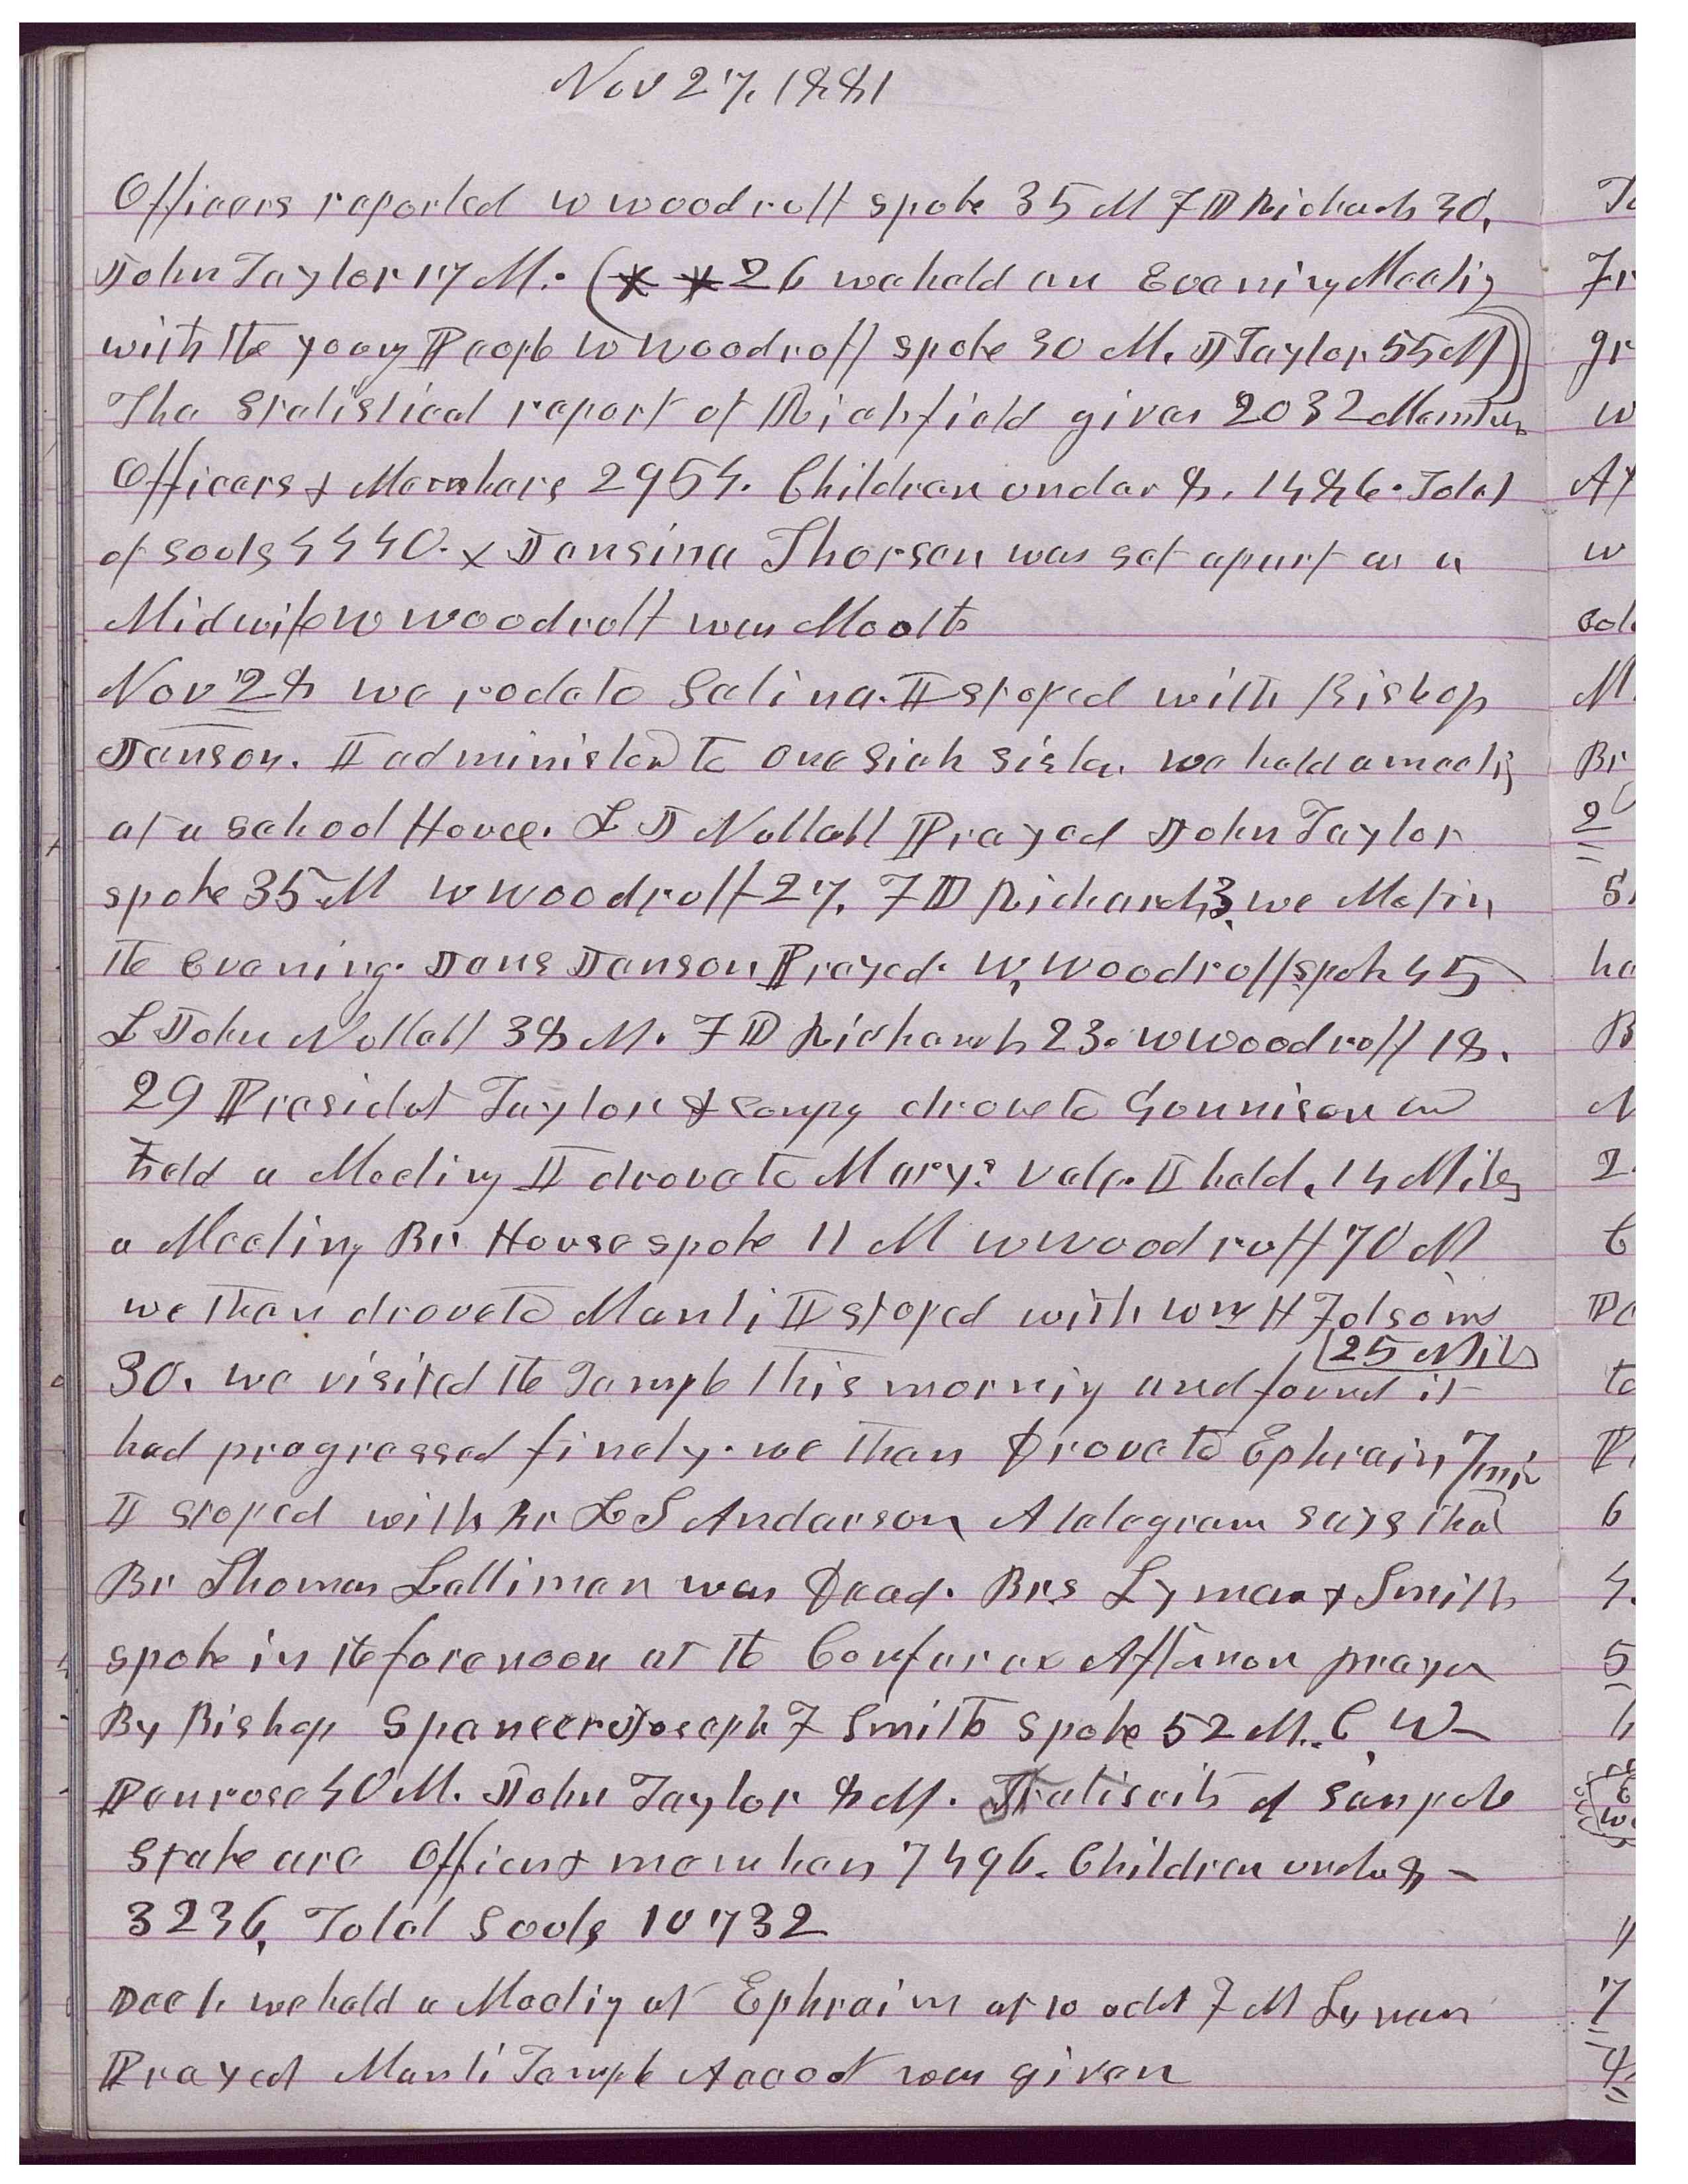 Nov 27, 1881
Officers reported W Woodruff spoke 35 M F D Richards 30,
John Taylor 17 M. (* * 26 we held an Evening Meetig
with the young People W Woodruff spoke 30 M. J Taylor 55 M)
The Statistical report of Richfield gives 2032 Members
Officers & Members 2954. Children under 8. 1486. Total
of Souls 4440. X Jensina Thorsen was set apart as a
Midwife W Woodruff was Mouth
Nov 28 we rode to Salina. I stoped with Bishop
Jenson. I administerd to one Sick Sister. we held a meetig
at a School House. L J Nuttall Prayed John Taylor
spoke 35 M W Woodruff 27, F D Richards 3, we Met in
the evening. Jens Jenson Prayed. W, Woodruff spok 45
L John Nuttall 38 M. F D Richards 23. W Woodruff 18.
29 Presidet Taylor & compy drove to Gunnison and
held a Meeting I drove to Mary's vale. I held, 14 Miles
a Meeting Br House spoke 11 M W Woodruff 70 M
we then drove to Manti I stoped with Wm H Folsom
25 Miles
30. we visited the Temple this mornig and found it
had progressed finely. we then Drove to Ephraim 7 mils
I stoped with Br L S Anderson A telegram says that
Br Thomas Lattiman was Dead. Brs Lyman & Smith
spoke in the forenoon at the Conferance Afternoon prayer
By Bishop Spencer Joseph F Smith Spoke 52 M. C, W
Penrose 40 M. John Taylor 8 M. Statiscits of Sanpete
Stake are Officers & members 7496. Children under 8
3236, Total Souls 10732
Dec 1. we held a Meetig at Ephraim at 10 oclok F M Lyman
Prayed Manti Temple Accout was given